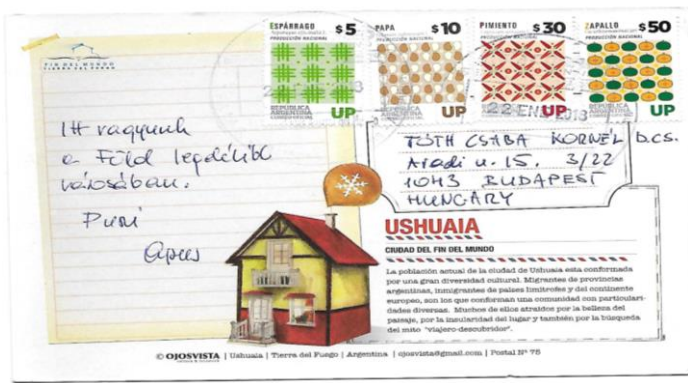 ESPÁRRAGO $5
PRODUCCIÓN NACIONAL
REPÚBLICA
ARGENTINA
UP
PAPA $10
PRODUCCIÓN NACIONAL
REPÚBLICA
ARGENTINA
UP
PIMIENTO $30
PRODUCCIÓN NACIONAL
REPÚBLICA
ARGENTINA
UP
ZAPALLO $50
PRODUCCIÓN NACIONAL
UP
FIN DEL MUNDO
TIERRA DEL FUEGO
Itt vagyunk
a Föld legdélibb
városában.
Puszi
Apus
TÓTH CSABA KORNÉL D.CS.
Aradi u. 15. 3/22
1043 BUDAPEST
HUNGARY
USHUAIA
CIUDAD DEL FIN DEL MUNDO
La población actual de la ciudad de Ushuaia esta conformada
por una gran diversidad cultural. Migrantes de provincias
argentinas, inmigrantes de países limítrofes y del continente
europeo, son los que conforman una comunidad con particulari-
dades diversas. Muchos de ellos atraídos por la belleza del
paisaje, por la insularidad del lugar y también por la búsqueda
del mito "viajero-descubridor".
© OJOSVISTA | Ushuaia | Tierra del Fuego | Argentina | ojosvista@gmail.com | Postal Nº 75